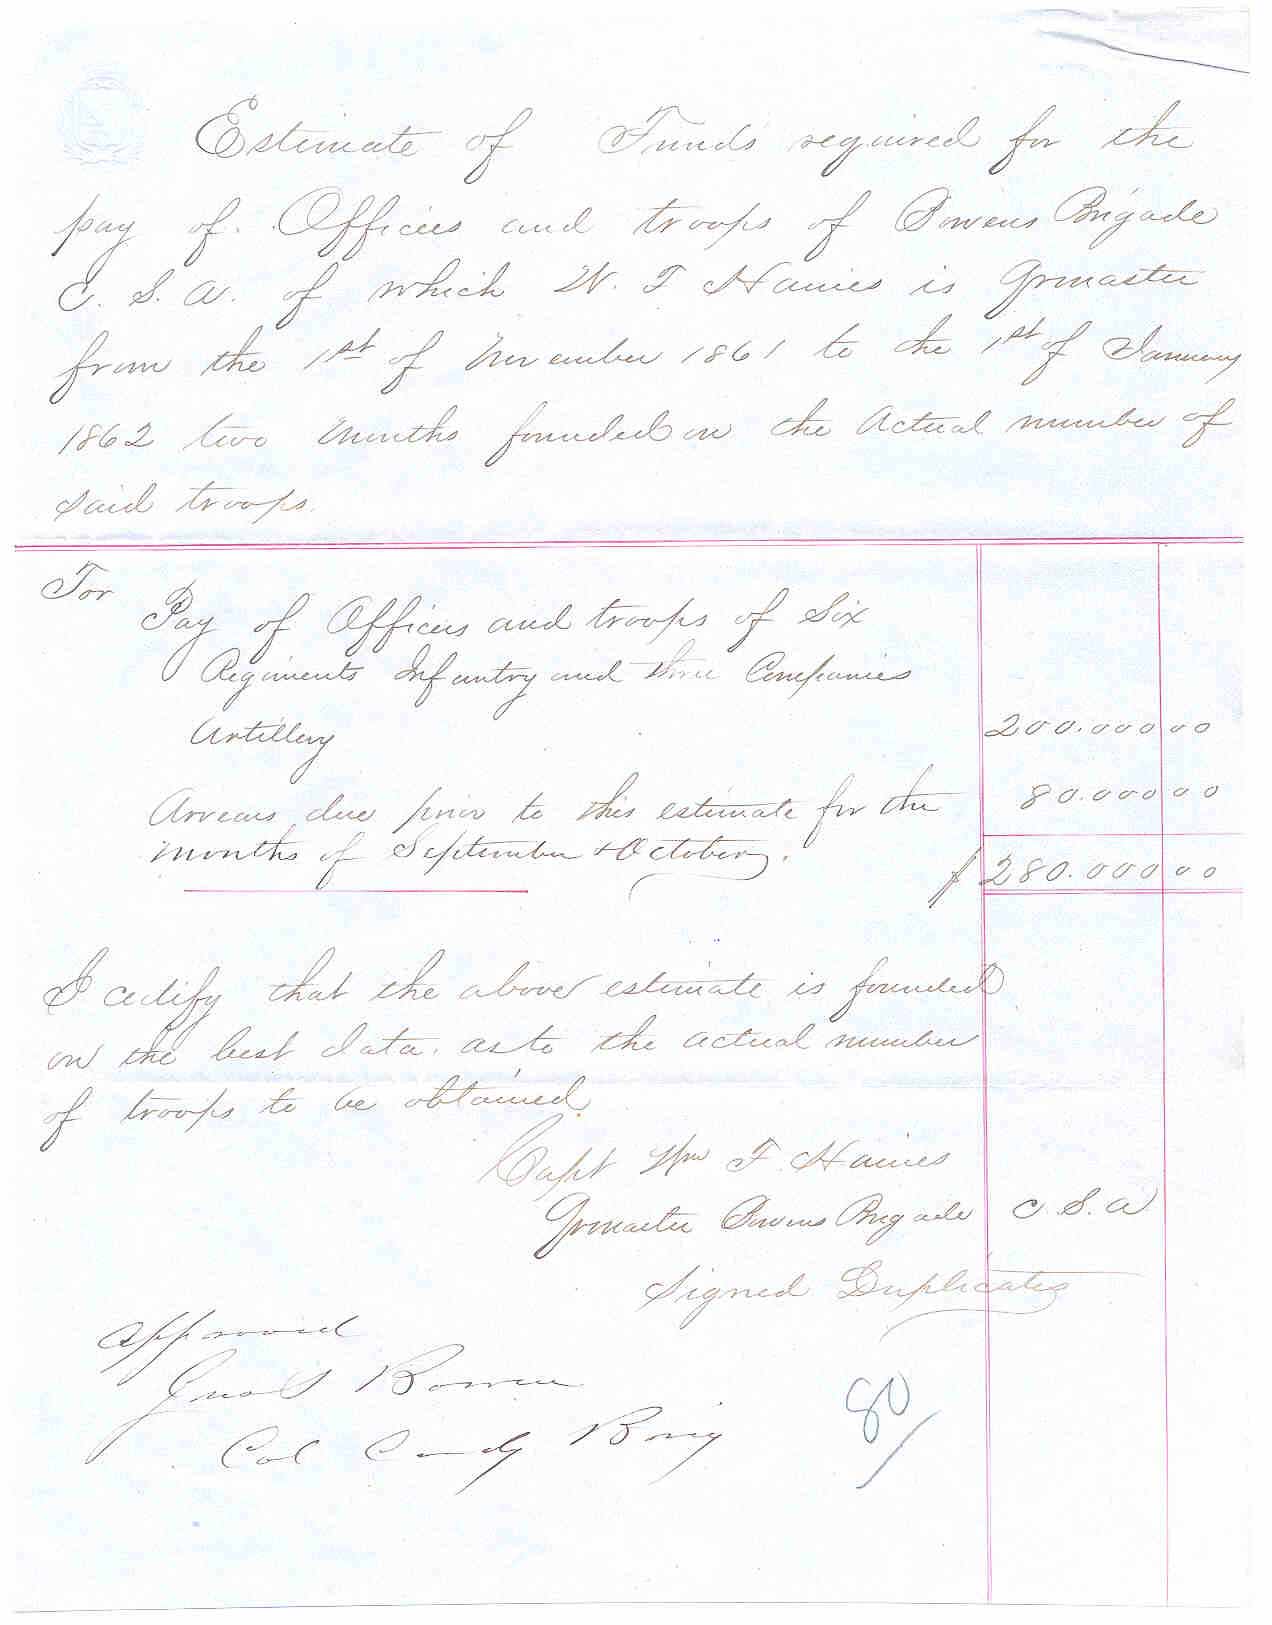 Estimate of Funds required for the
pay of Officers and troops of Bowens Brigade
C. S. A. of which W. F Haines is Qrmaster
from the 1st of November 1861 to the 1st of January
1862 two Months founded on the Actual number of
said troops.
For
Pay of Officers and troops of Six
Regiments Infantry and three Companies
Artillery 200.000 00
Arrears due prior to this estimate for the 80.000 00
months of September & October. $ 280.000 00
I certify that the above estimate is founded
on the best data. as to the actual number
of troops to be obtained.
Capt Wm F. Haines
Qrmaster Bowens Brigade C. S. A
Signed Duplicates
Approved
Jno S Bowen
Col Comdg Brig
80